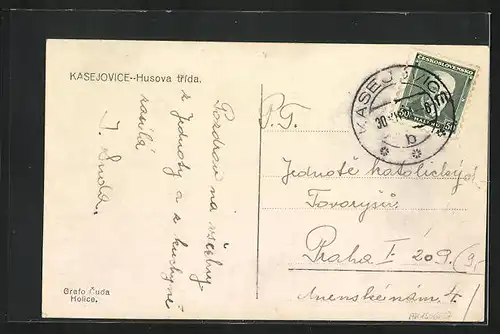 KASEJOVICE--Husova třída.
Pozdrav na všechny
z Jednoty a z kuchyně
zasílá
J. Suda.
Grafo Čuda
Holice.
ČESKOSLOVENSKO
KASEJOVICE
b
P. T.
Jednotě katolických
Tovaryšů.
Praha I. 209.
Anenské nám. 4.